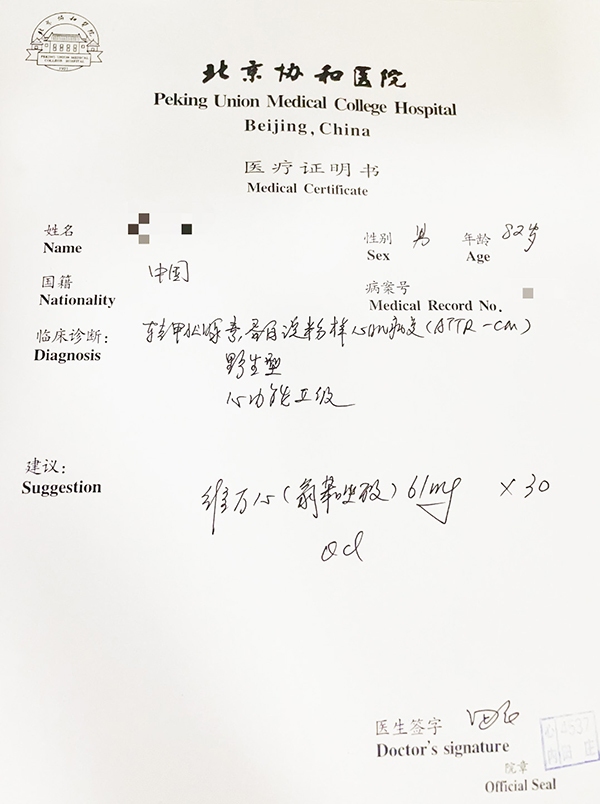 北京协和医院
PEKING UNION MEDICAL COLLEGE HOSPITAL
1921
北京协和医院
Peking Union Medical College Hospital
Beijing, China
医疗证明书
Medical Certificate
姓名
Name
性别 男 年龄 82岁
Sex Age
国籍 中国
Nationality
病案号
Medical Record No.
临床诊断: 转甲状腺素蛋白淀粉样心肌病变(ATTR-CM)
Diagnosis
野生型
心功能Ⅱ级
建议:
Suggestion
维万心(氯苯唑酸) 61mg ×30
Qd
医生签字
Doctor's signature
心 4537
内 田庄
院章
Official Seal